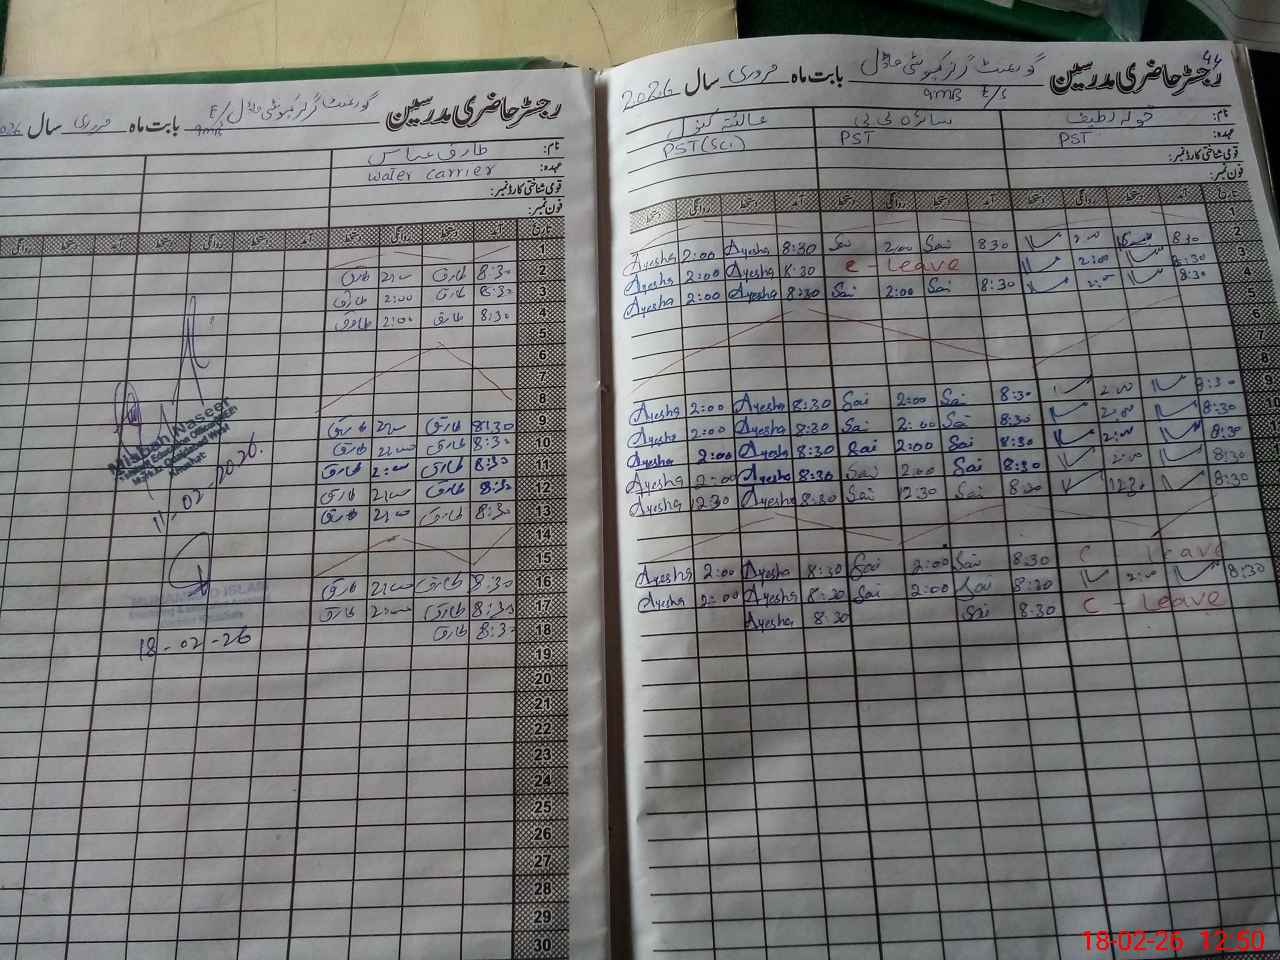 44
رجسٹر حاضری مدرسین گورنمنٹ گرلز کمیونٹی ماڈل بابت ماہ فروری سال 2026
9MB E/S
نام: خولہ لطیف سائرہ بی بی عائشہ کنول
عہدہ: PST PST PST (SCI)
قومی شناختی کارڈ نمبر:
فون نمبر:
تاریخ آمد دستخط روانگی دستخط آمد دستخط روانگی دستخط آمد دستخط روانگی دستخط
1
2 8:30 2:00 8:30 Sai 2:00 Sai 8:30 Ayesha 2:00 Ayesha
3 8:30 2:00 c - Leave 8:30 Ayesha 2:00 Ayesha
4 8:30 2:00 8:30 Sai 2:00 Sai 8:30 Ayesha 2:00 Ayesha
5
6
7
8
9 8:30 2:00 8:30 Sai 2:00 Sai 8:30 Ayesha 2:00 Ayesha
10 8:30 2:00 8:30 Sai 2:00 Sai 8:30 Ayesha 2:00 Ayesha
8:30 2:00 8:30 Sai 2:00 Sai 8:30 Ayesha 2:00 Ayesha
8:30 2:00 8:30 Sai 2:00 Sai 8:30 Ayesha 2:00 Ayesha
8:30 12:30 8:30 Sai 12:30 Sai 8:30 Ayesha 12:30 Ayesha
c Leave 8:30 Sai 2:00 Sai 8:30 Ayesha 2:00 Ayesha
8:30 2:00 8:30 Sai 2:00 Sai 8:30 Ayesha 2:00 Ayesha
c - Leave 8:30 Sai 8:30 Ayesha
رجسٹر حاضری مدرسین گورنمنٹ گرلز کمیونٹی ماڈل E/ بابت ماہ فروری سال 2026
9MB
نام: طارق عباس
عہدہ: Water Carrier
قومی شناختی کارڈ نمبر:
فون نمبر:
تاریخ آمد دستخط روانگی دستخط آمد دستخط روانگی دستخط آمد دستخط روانگی
1
2 8:30 طارق 2:00 طارق
3 8:30 طارق 2:00 طارق
4 8:30 طارق 2:00 طارق
5
6
7
8
9 8:30 طارق 2:00 طارق
10 8:30 طارق 2:00 طارق
11 8:30 طارق 2:00 طارق
12 8:30 طارق 2:00 طارق
13 8:30 طارق 2:00 طارق
14
15
16 8:30 طارق 2:00 طارق
17 8:30 طارق 2:00 طارق
18 8:30 طارق
19
20
21
22
23
24
25
26
27
28
29
30
Misbah Naseer
11-02-2026.
18-02-26
18-02-26 12:50